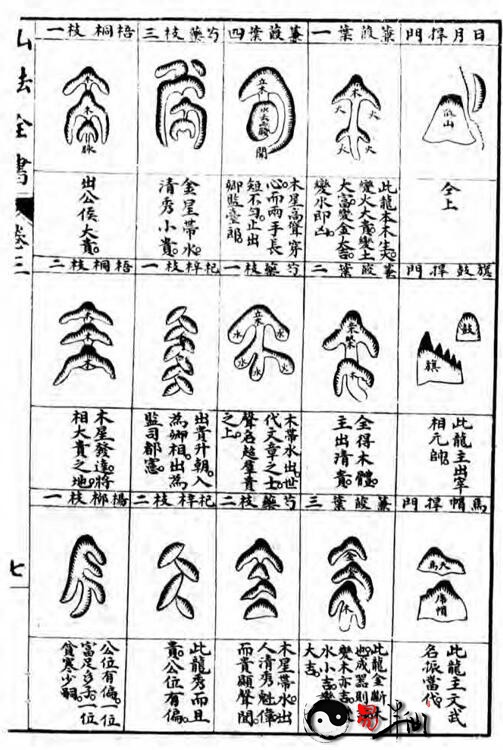 山法全書
卷三
七
日月捍門
仝上
蒹葭葉一
木
火 火
火 火
變火大貴變土
大富變金大吉
變水即凶
蒹葭葉四
立木
木星高聳穿
心而兩手長
短不勻止出
卿監臺郎
芍藥枝三
金星帶水
清秀小貴
梧桐枝一
木
木
脉
出公侯大貴
旗鼓捍門
鼓
旗
此龍主出宰
相元帥
蒹葭葉二
木
全得木體
主出清貴
芍藥枝一
立木
水 水
水 火
木帶水出世
代文章之士
聲名超羣貴
之上
杞梓枝一
出貴升朝入
為卿相出為
監司都憲
梧桐枝二
木
木
木
木星發達將
相大貴之地
馬帽捍門
天馬
席帽
此龍主文武
名派當代
蒹葭葉三
金
木
此龍金斷木
也成器則
變木亦吉
水小吉變
大吉
芍藥枝二
木星帶水出
人清秀魁偉
而貴顯聲聞
杞梓枝二
此龍秀而且
貴公位有偏
楊柳枝一
公位有偏一位
富足多 一位
貧寒少嗣